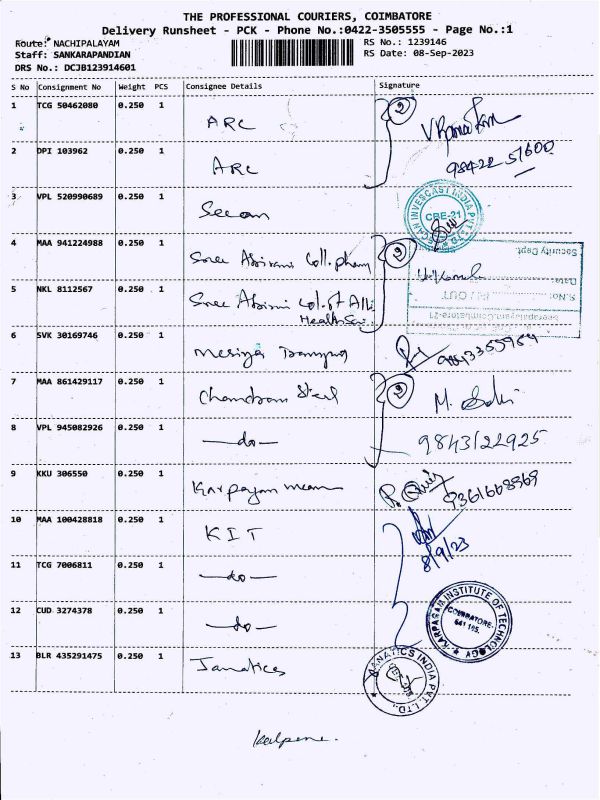 THE PROFESSIONAL COURIERS, COIMBATORE
Delivery Runsheet - PCK - Phone No.:0422-3505555 - Page No.:1
Route: NACHIPALAYAM RS No.: 1239146
Staff: SANKARAPANDIAN RS Date: 08-Sep-2023
DRS No.: DCJB123914601
S No Consignment No Weight PCS Consignee Details Signature
1 TCG 50462080 0.250 1 ARC 2
2 DPI 103962 0.250 1 ARC 98422 51600
3 VPL 520990689 0.250 1 Secan
CBE-21
4 MAA 941224988 0.250 1 Sree Abirami Coll. pham 2
Security Dept.
Date:
5 NKL 8112567 0.250 1 Sree Abirami Col. of All.
Health Sci.
S.No: IN / OUT
6 SVK 30169746 0.250 1
7 MAA 861429117 0.250 1 Chandram Steel 2
8 VPL 945082926 0.250 1 —do— 9843122925
9 KKU 306550 0.250 1 Karpagam 9361668369
10 MAA 100428818 0.250 1 KIT
8/9/23
11 TCG 7006811 0.250 1 —do—
12 CUD 3274378 0.250 1 —do—
KARPAGAM INSTITUTE OF TECHNOLOGY
COIMBATORE-
641 105.
13 BLR 435291475 0.250 1 Janatics
JANATICS INDIA PVT. LTD.